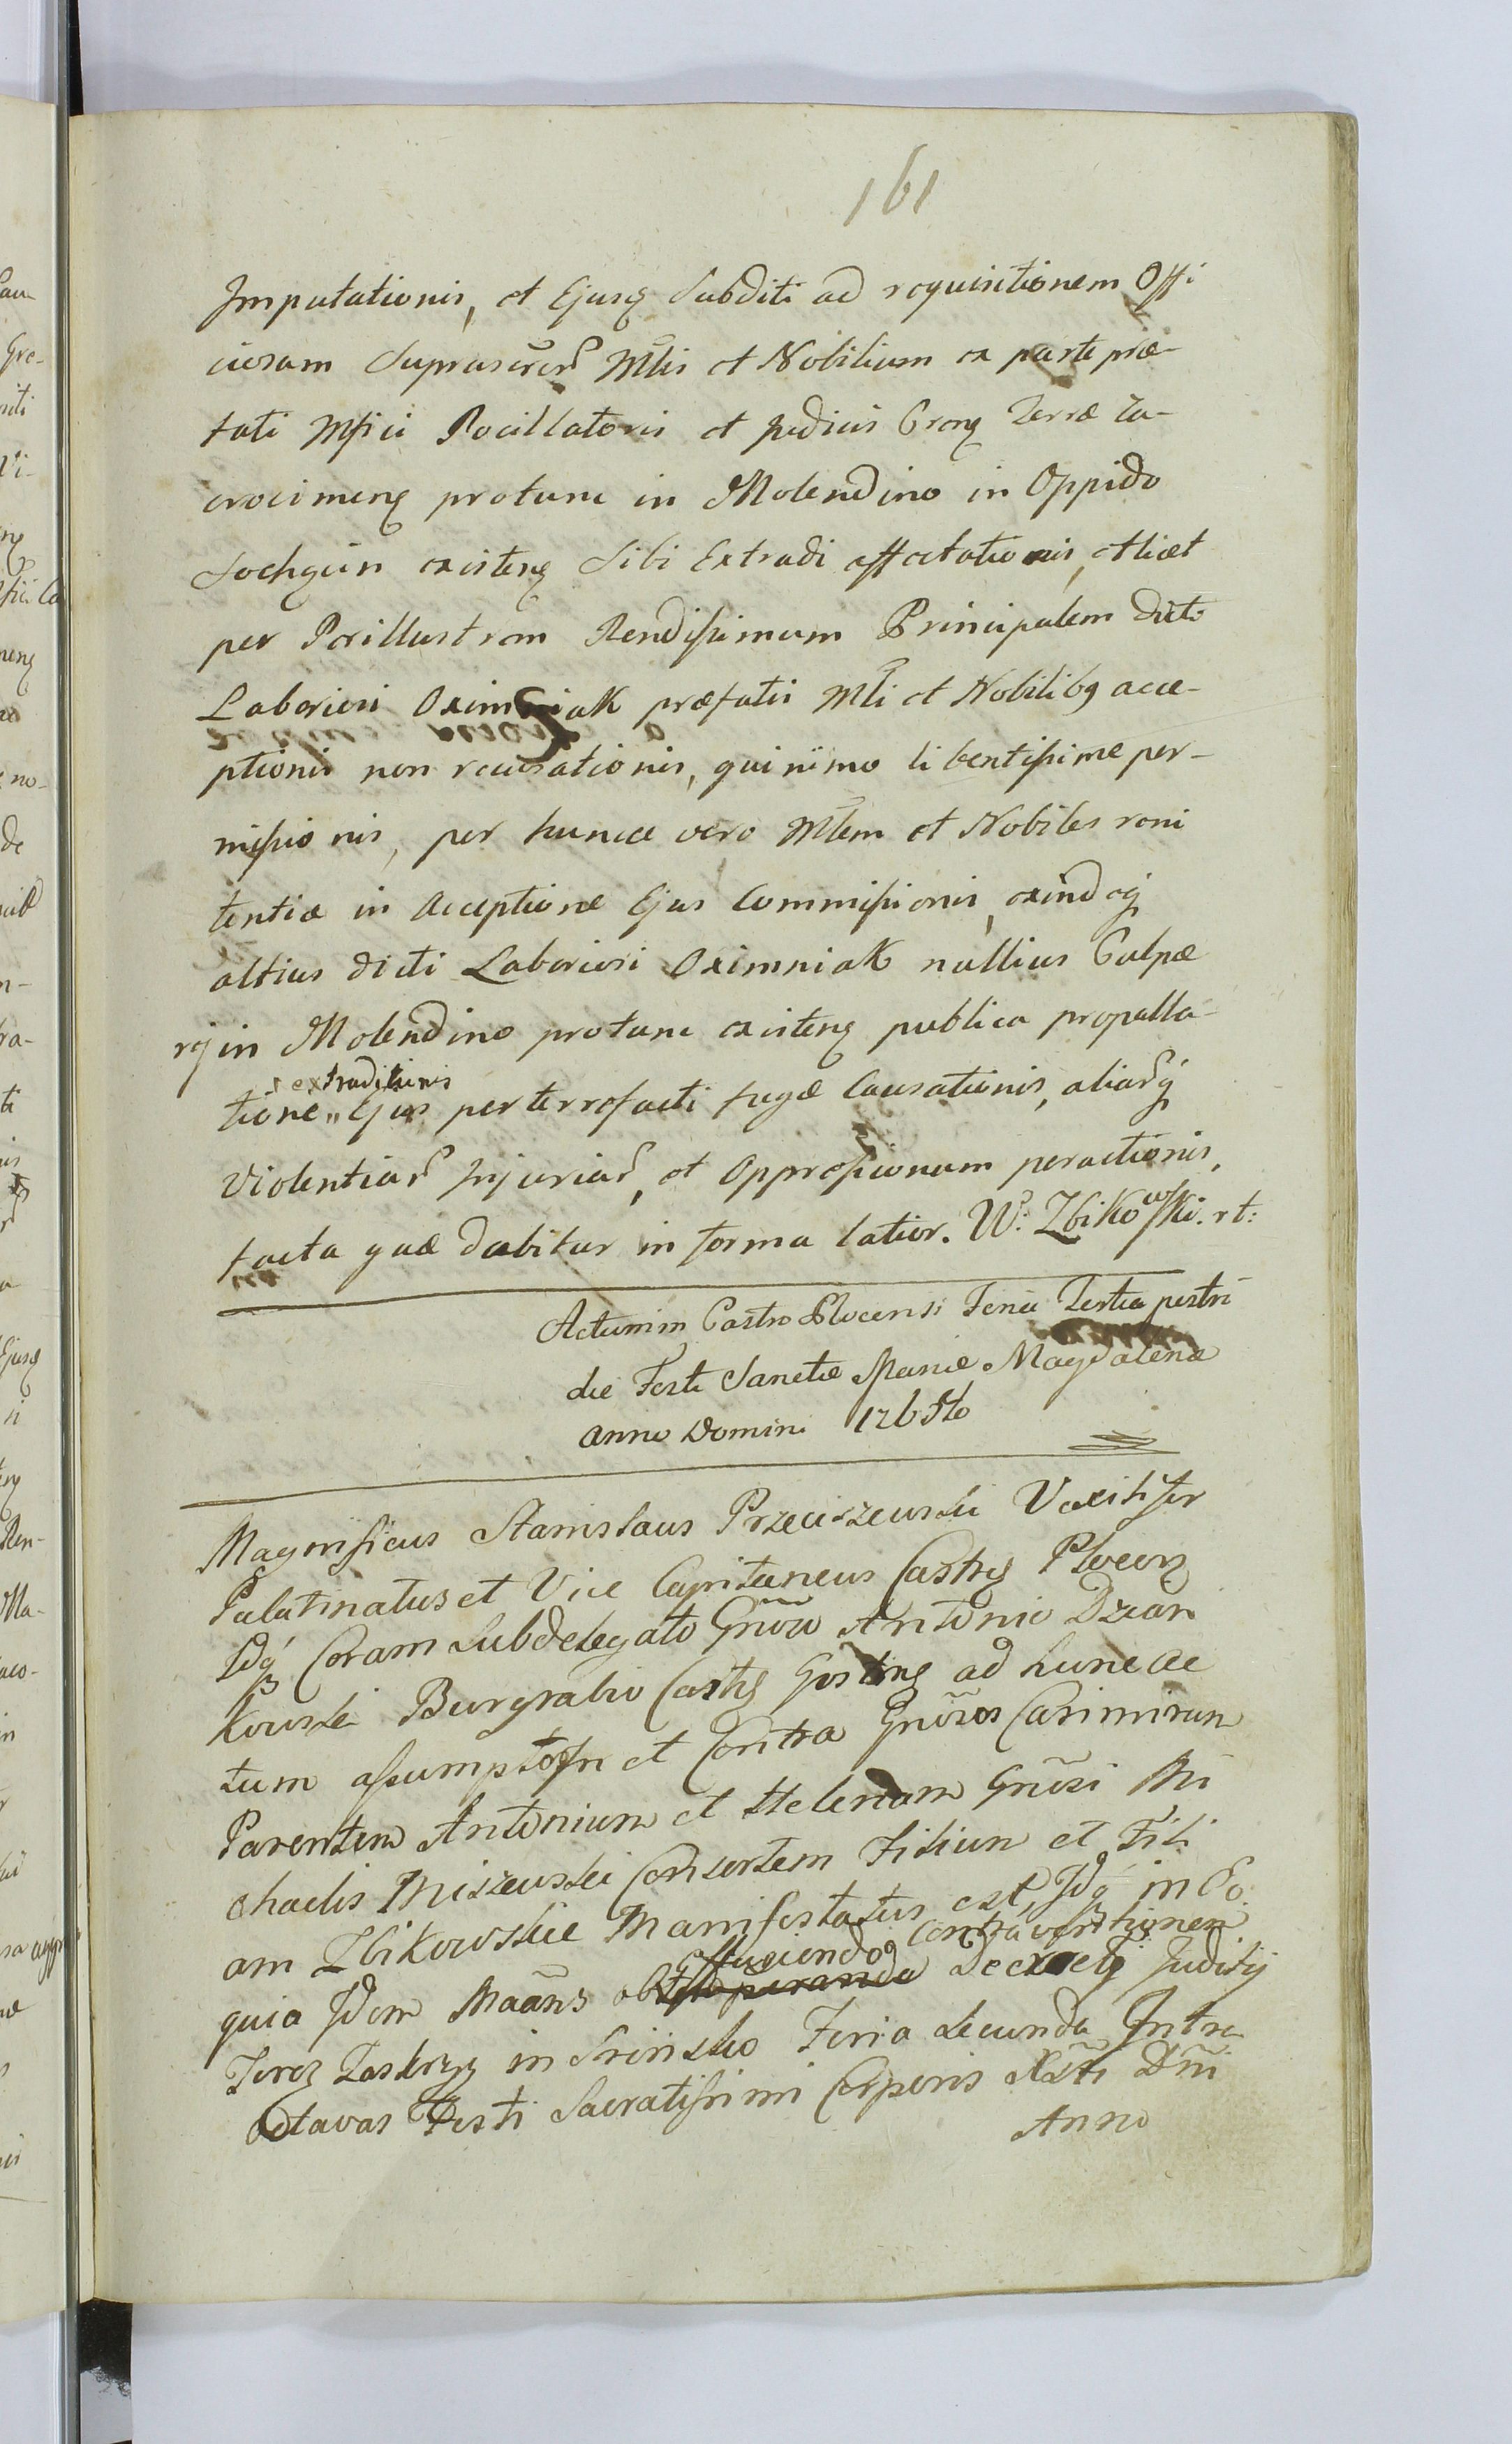 161
Imputationis, et Ejusq Subditi ad requisitionem Offi
ciosam Suprascrr Mlis et Nobilium ex parte præ-
fati Mfici Pocillatoris et Judicis Terræ Za-
crocimenq protunc in Molendino in Oppido
Sochocin existenq Sibi Extradi affectationis, et licet
per Perillustrem Rendissimum Principalem dicti
Laboriosi Oximniak præfatis Mli et Nobilibq acce-
ptionis non recusationis, quinimo libentissime per-
missionis, per hunce vero Mlem et Nobiles reni
tentiæ in Acceptione Ejus Commissionis, exindeq
altius dicti Laboriosi Oximniak nullius Culpæ
rej in Molendino protunc existenq publica propalla-
extraditionis
tione Ejus perterrefacti fugæ Causationis, aliarq
Violentiar Injuriar, et Oppressionum peractionis,
facta quæ dabitur in forma latior. W. Zbikowski. rt:
Actum in Castro Plocensi Feria Tertia pstri
die Festi Sanctæ Mariæ Magdalenæ
anno Domini 176
Magnificus Stanislaus Przeciszewski Vexillifer
Palatinatus et Vice Capitaneus Castrq Plocenq
Idq Coram Subdelegato Gnoso Antonio Dzian
kowski Burgrabio Castrq Gostinq ad hunc ac
tum assumpto In et Contra Gnosos Casimirum
Parentem Antonium et Helenam Gnosi Mi
chaelis Miszewski Consortem Filium et Fili
am Zbikowskie Manifestatus est, Idq in Eo.
Effugiendo Contraventionem
quia Idem Maans Decreti Judicij
in Feria Secunda Intra
Octavas Festi Sacratissimi Corporis Xsti Dni
Anno